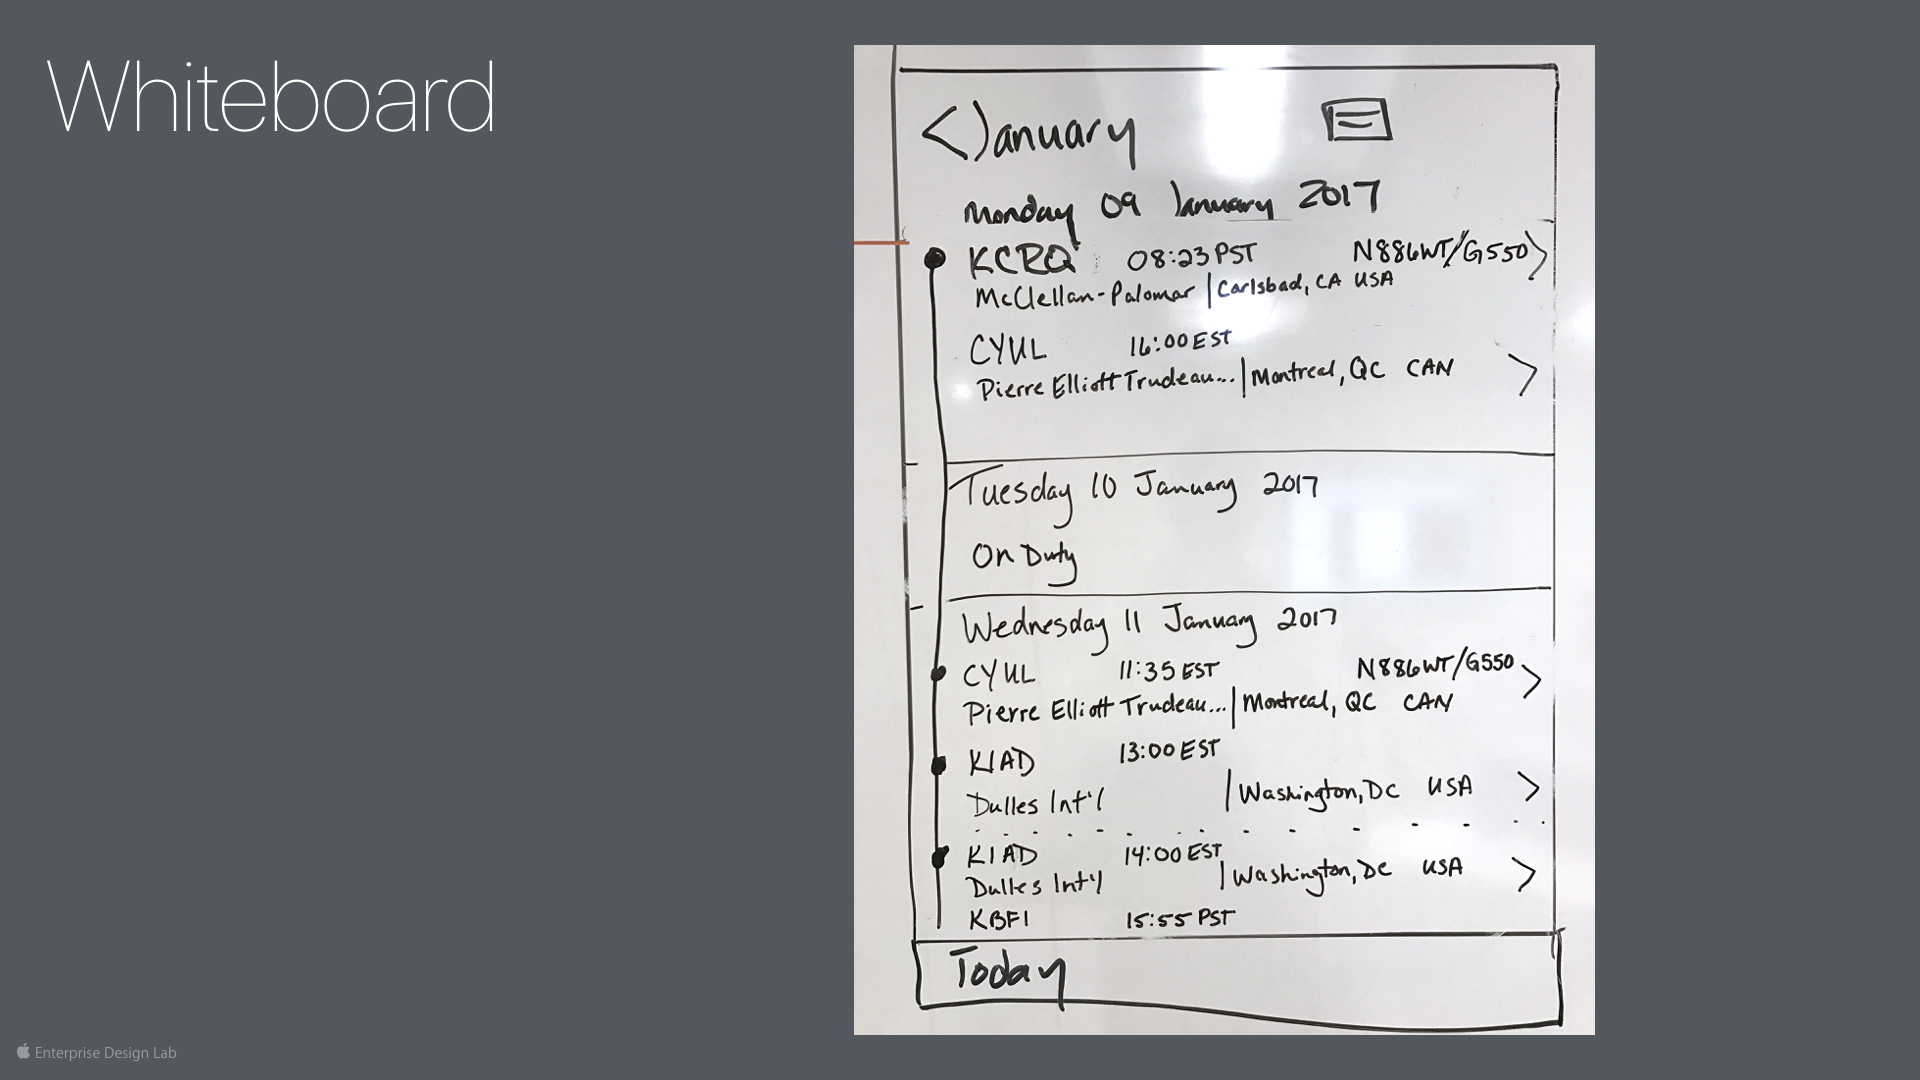 Whiteboard
< January
Monday 09 January 2017
KCRQ 08:23 PST N886WT/G550 >
McClellan-Palomar | Carlsbad, CA USA
CYUL 16:00 EST
Pierre Elliott Trudeau... | Montreal, QC CAN >
Tuesday 10 January 2017
On Duty
Wednesday 11 January 2017
CYUL 11:35 EST N886WT/G550 >
Pierre Elliott Trudeau... | Montreal, QC CAN
KIAD 13:00 EST
Dulles Int'l | Washington, DC USA >
KIAD 14:00 EST
Dulles Int'l | Washington, DC USA >
KBFI 15:55 PST
Today
Enterprise Design Lab